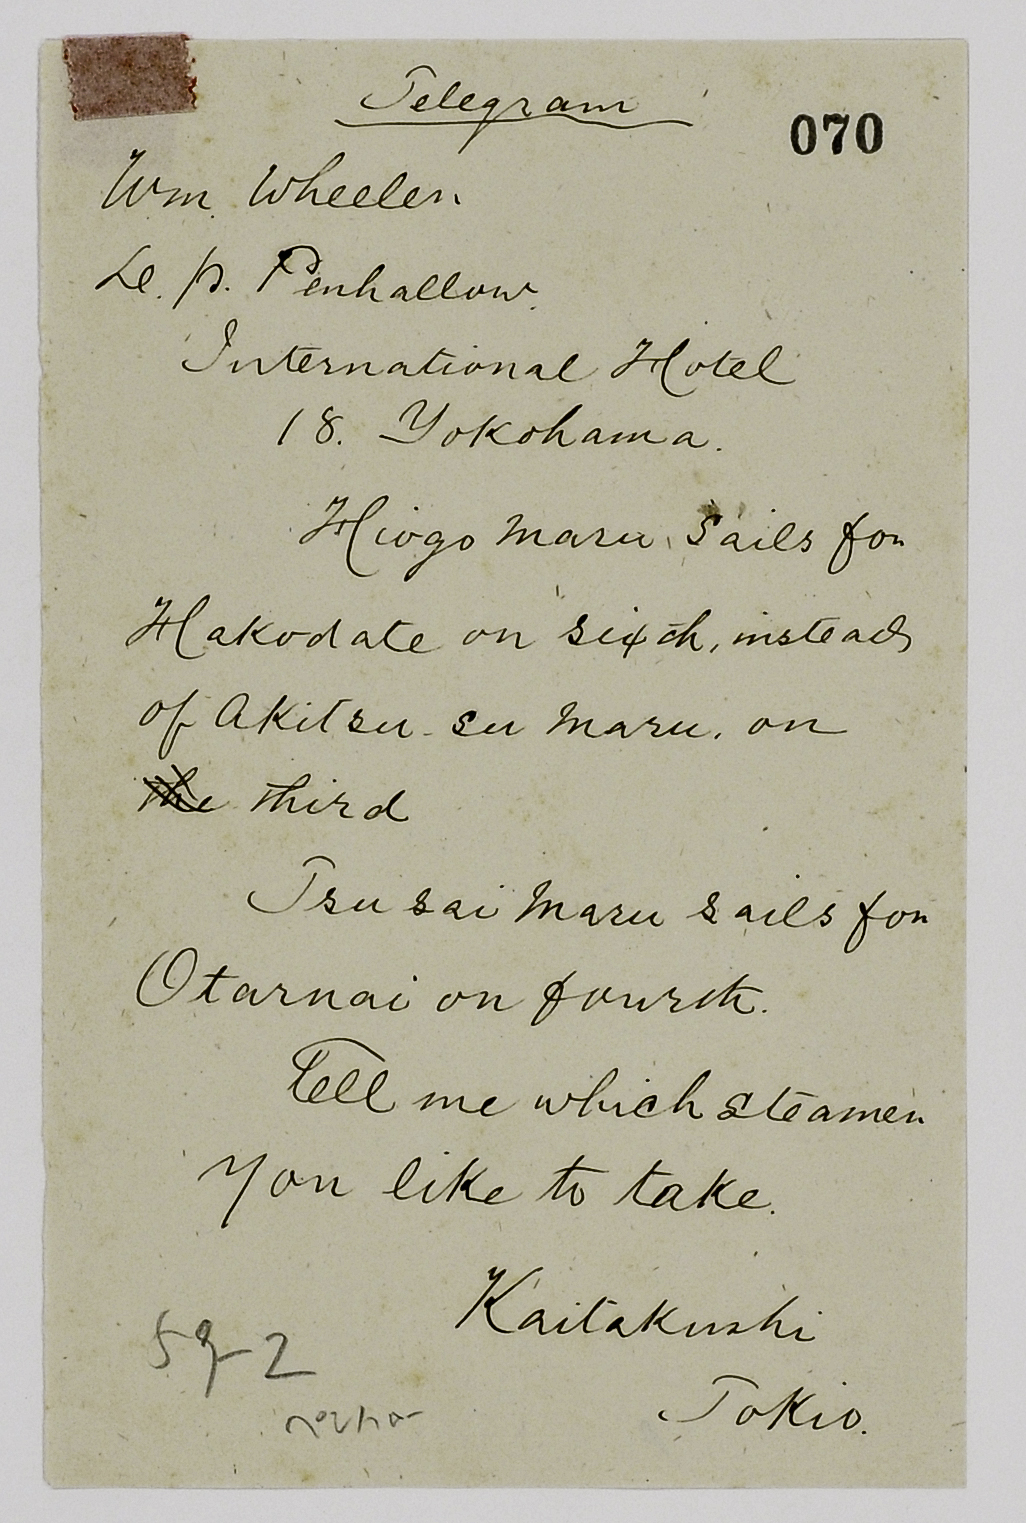 Telegram
070
Wm. Wheeler.
D. P. Penhallow.
International Hotel
18. Yokohama.
Hiogo Maru Sails for
Hakodate on sixth, instead
of Akitsu-su Maru. on
the third
Tsusai Maru sails for
Otarnai on fourth.
Tell me which steamer
you like to take.
Kaitakushi
Tokio.